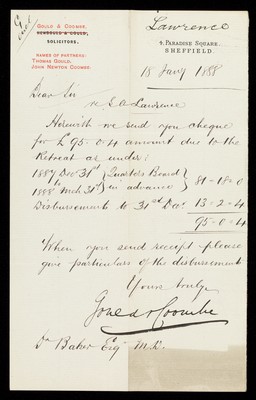 Encl
Lawrence
GOULD & COOMBE,
SOLICITORS.
4, PARADISE SQUARE,
SHEFFIELD.
NAMES OF PARTNERS:
THOMAS GOULD.
JOHN NEWTON COOMBE.
18 Jany 1888
Dear Sir
re G. A. Lawrence
Herewith we send you cheque
for £95-0-4 amount due to the
Retreat as under:
1887 Dec 31st } Quarters Board }
1888 Mch 31st } in advance } 81-18-0
Disbursements to 31st Dec. 13-2-4
95-0-4
When you send receipt please
give particulars of the disbursements
Yours truly
Gould & Coombe
Dr Baker Esqr M.D.